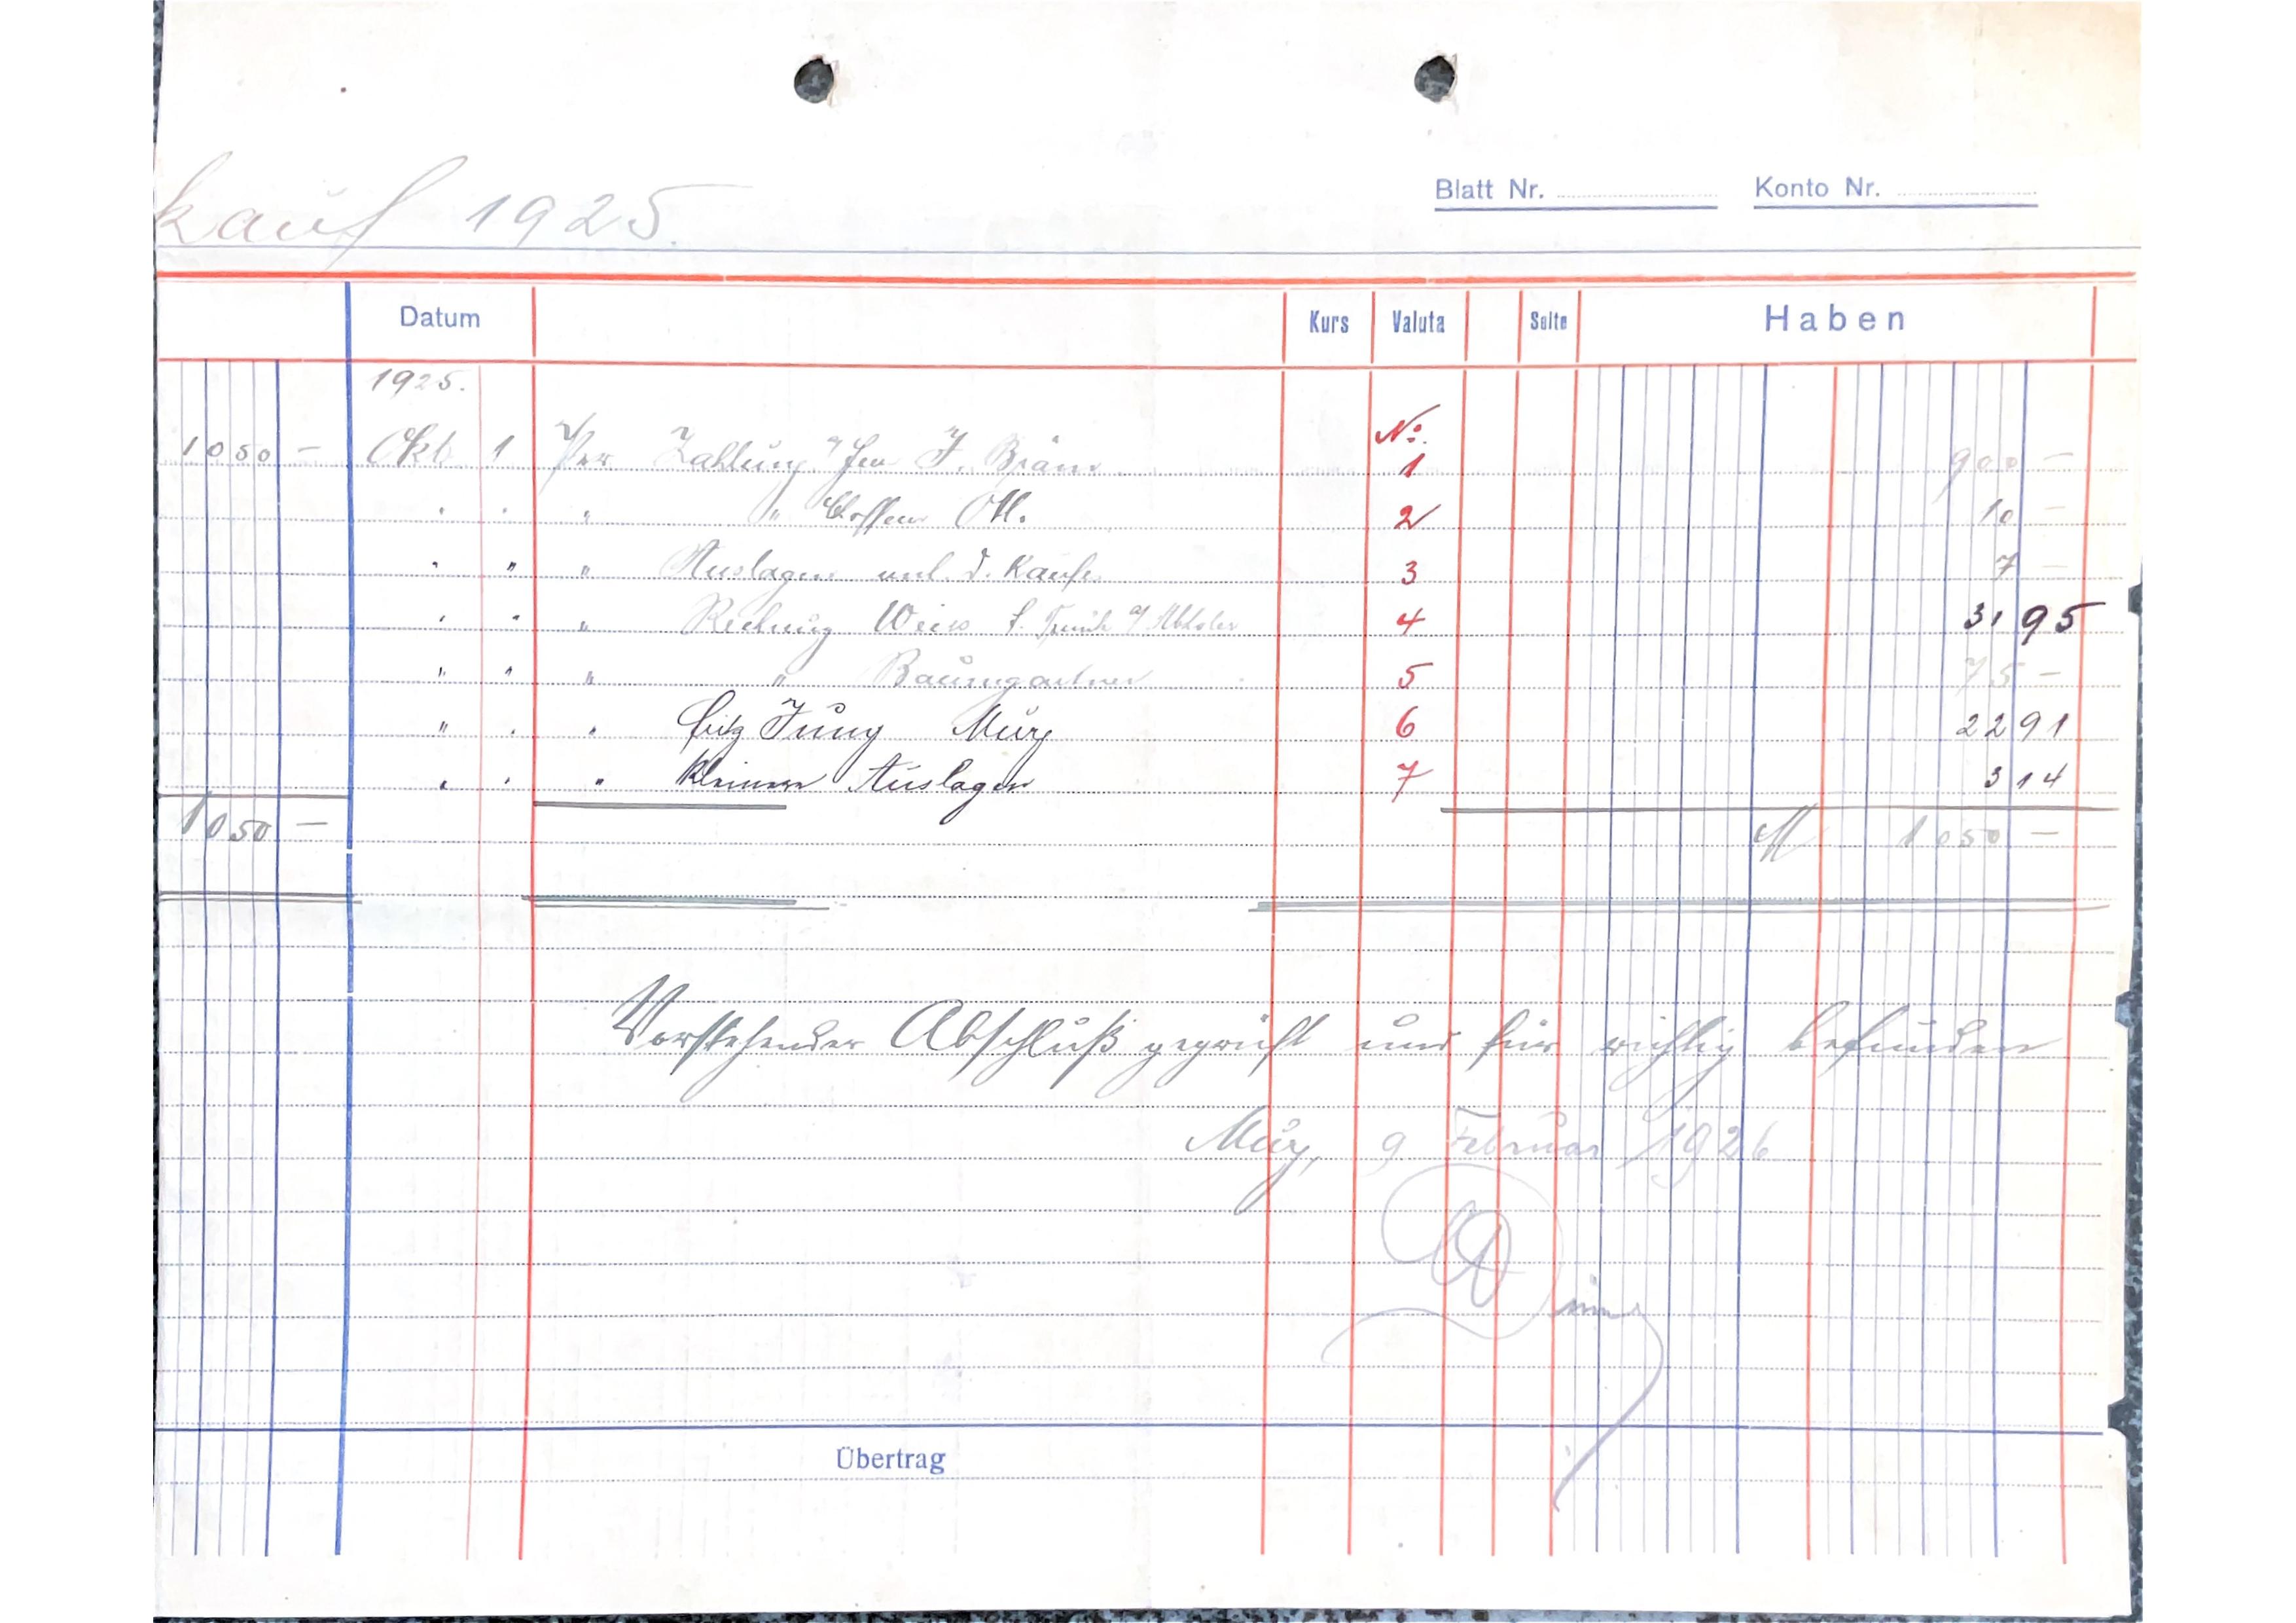 Blatt Nr. Konto Nr.
kauf 1925.
Datum Kurs Valuta Seite Haben
1925.
No.
1050 – Okt. 1 Per Zahlung an J. 1 900 –
" " " " Ott. 2 10 –
" " " Auslagen d. Kaufs 3 7 –
" " " Rechnung Weiss f. 4 31 95
" " " " Baumgartner 5 75 –
" " " Fritz Jung Murg 6 22 91
" " " kleinere Auslagen 7 3 14
1050 – M 1050 –
Vorstehender Abschluß geprüft und für richtig befunden
Murg, 9 Februar 1926
Übertrag